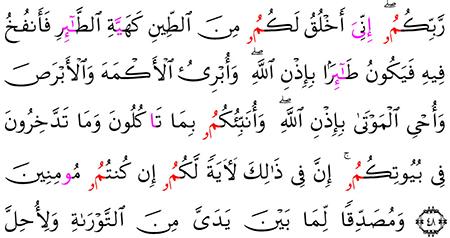 رَّبِّكُمُۥۖ إِنِّيَ أَخْلُقُ لَكُمُۥ مِنَ ٱلطِّينِ كَهَيَّةِ ٱلطَّٰٓئِرِ فَأَنفُخُ
فِيهِ فَيَكُونُ طَٰٓئِرَۢا بِإِذْنِ ٱللَّهِۖ وَأُبْرِئُ ٱلْأَكْمَهَ وَٱلْأَبْرَصَ
وَأُحْيِ ٱلْمَوْتَىٰ بِإِذْنِ ٱللَّهِۖ وَأُنَبِّئُكُمُۥ بِمَا تَاكُلُونَ وَمَا تَدَّخِرُونَ
فِي بُيُوتِكُمُۥۚ إِنَّ فِي ذَٰلِكَ لَأٓيَةً لَّكُمُۥ إِن كُنتُمُۥ مُومِنِينَ
٤٨ وَمُصَدِّقًا لِّمَا بَيْنَ يَدَيَّ مِنَ ٱلتَّوْرَىٰةِ وَلِأُحِلَّ